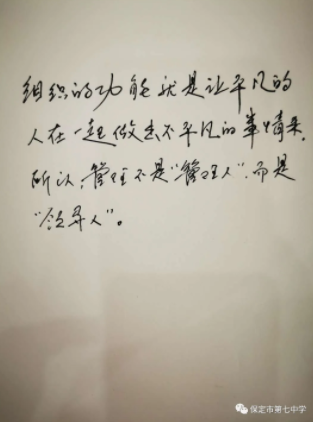 组织的功能就是让平凡的
人在一起做出不平凡的事情来,
所以,管理不是“管理人”,而是
“领导人”。
保定市第七中学